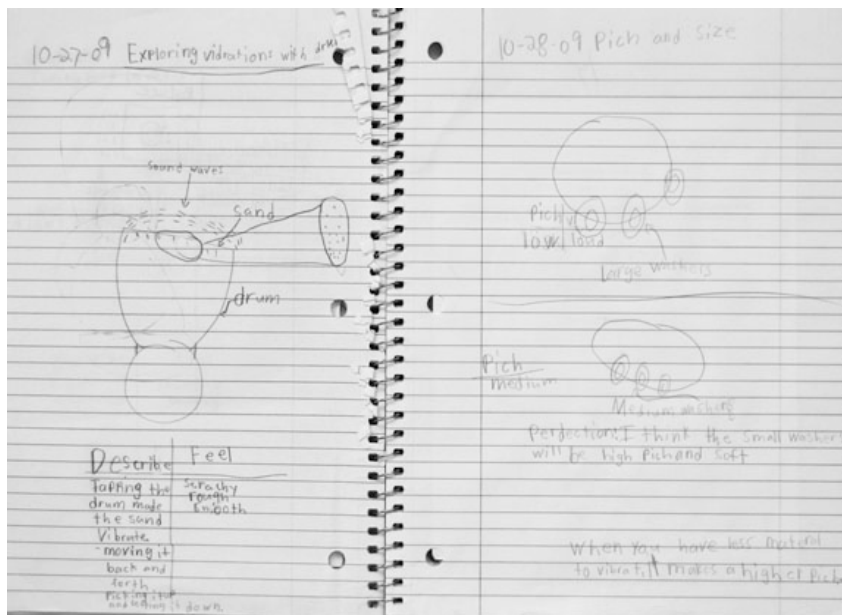 10-27-09 Exploring vidrations with drums
sound waves
sand
drum
Describe
Tapping the
drum made
the sand
Vibrate.
- moving it
back and
forth
picking it up
and letting it down.
Feel
Scrachy
rough
smooth
10-28-09 Pich and size
Pich
low/loud
Large washers
Pich
medium
Medium washers
Perdection: I think the small washers
will be high Pich and soft
When you have less material
to vibrate it makes a higher Pich